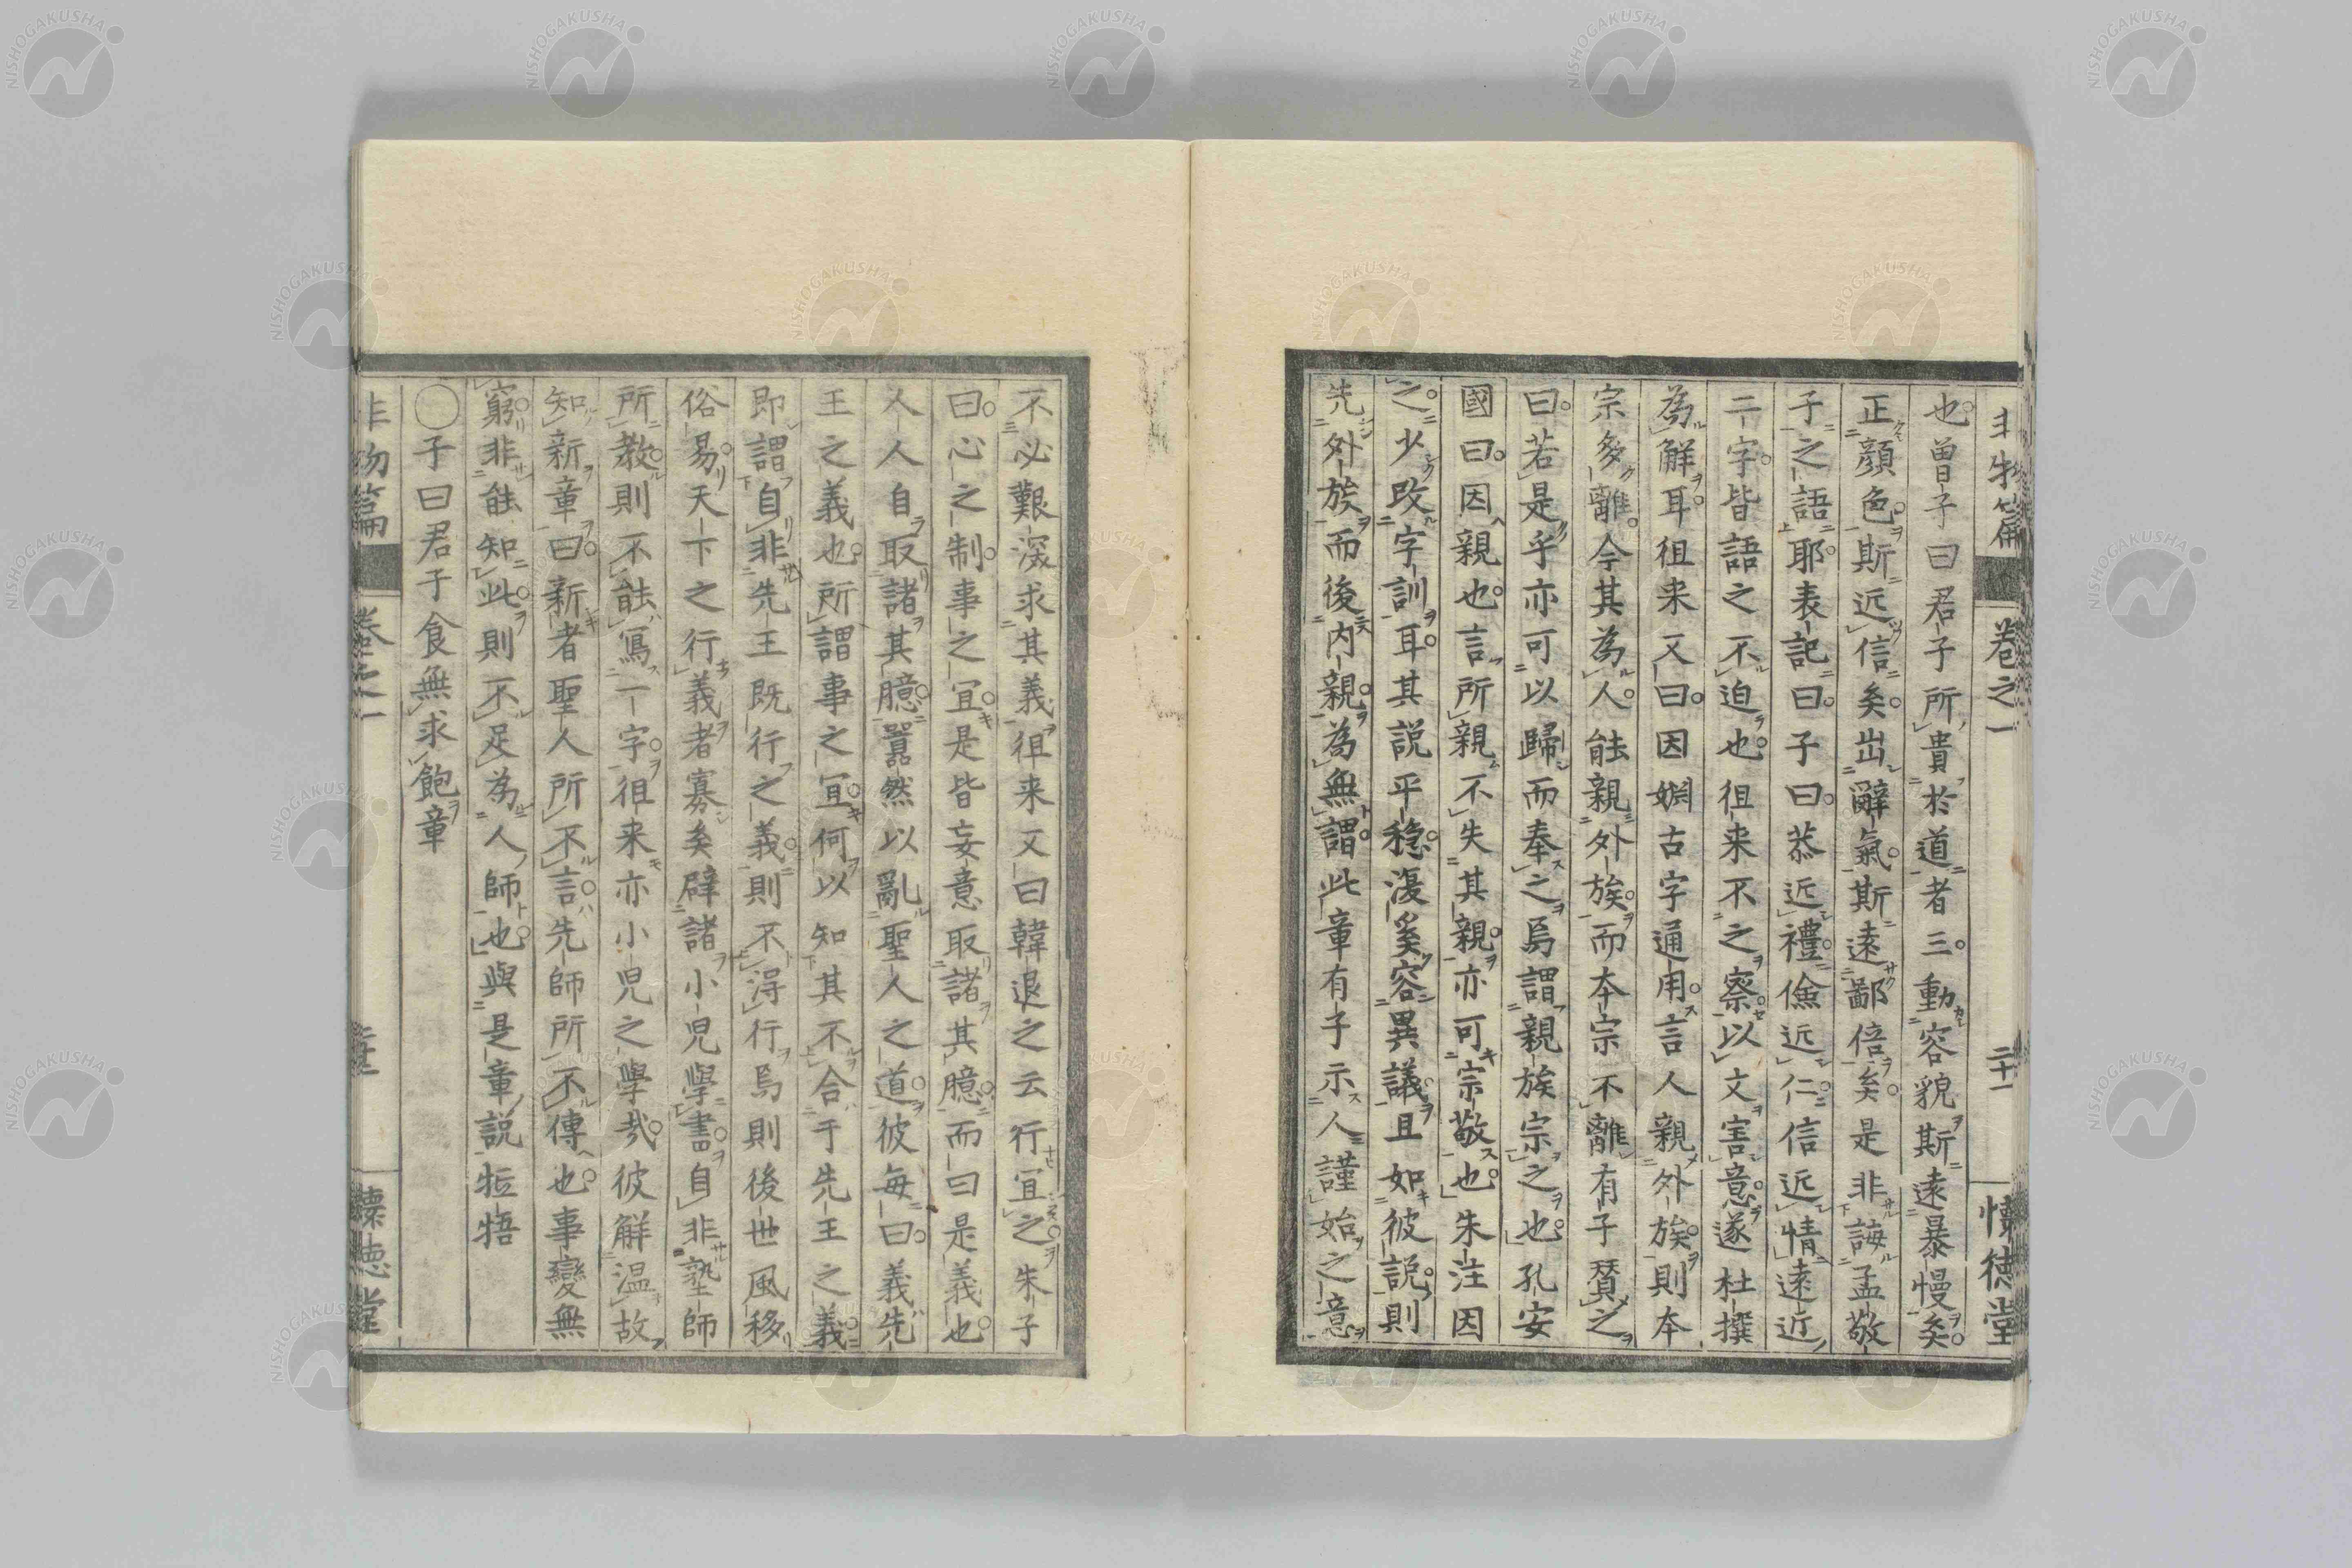 非物篇 卷之一 二十一 懐徳堂
也曽子曰君子所貴於道者三動容貌斯遠暴慢矣
正顔色斯近信矣出辭氣斯遠鄙倍矣是非誨孟敬
子之語耶表記曰子曰恭近禮儉近仁信近情遠近
二字皆語之不迫也徂来不之察以文害意遂杜撰
為解耳徂来又曰因姻古字通用言人親外族則本
宗多離今其為人能親外族而本宗不離有子賛之
曰若是乎亦可以歸而奉之烏謂親族宗之也孔安
國曰因親也言所親不失其親亦可宗敬也朱注因
之少改字訓耳其説平穏復奚容異議且如彼説則
先外族而後内親為無謂此章有子示人謹始之意
不必艱深求其義徂来又曰韓退之云行宜之朱子
曰心之制事之宜是皆妄意取諸其臆而曰是義也
人人自取諸其臆囂然以亂聖人之道彼毎曰義先
王之義也所謂事之宜何以知其不合于先王之義
即謂自非先王既行之義則不得行烏則後世風移
俗易天下之行義者寡矣辟諸小児學畵自非塾師
所教則不能寫一字徂来亦小児之學哉彼解温故
知新章曰新者聖人所不言先師所不傳也事變無
窮非能知此則不足為人師也與是章説牴牾
○子曰君子食無求飽章
非物篇 卷之一 懐徳堂
NISHOGAKUSHA